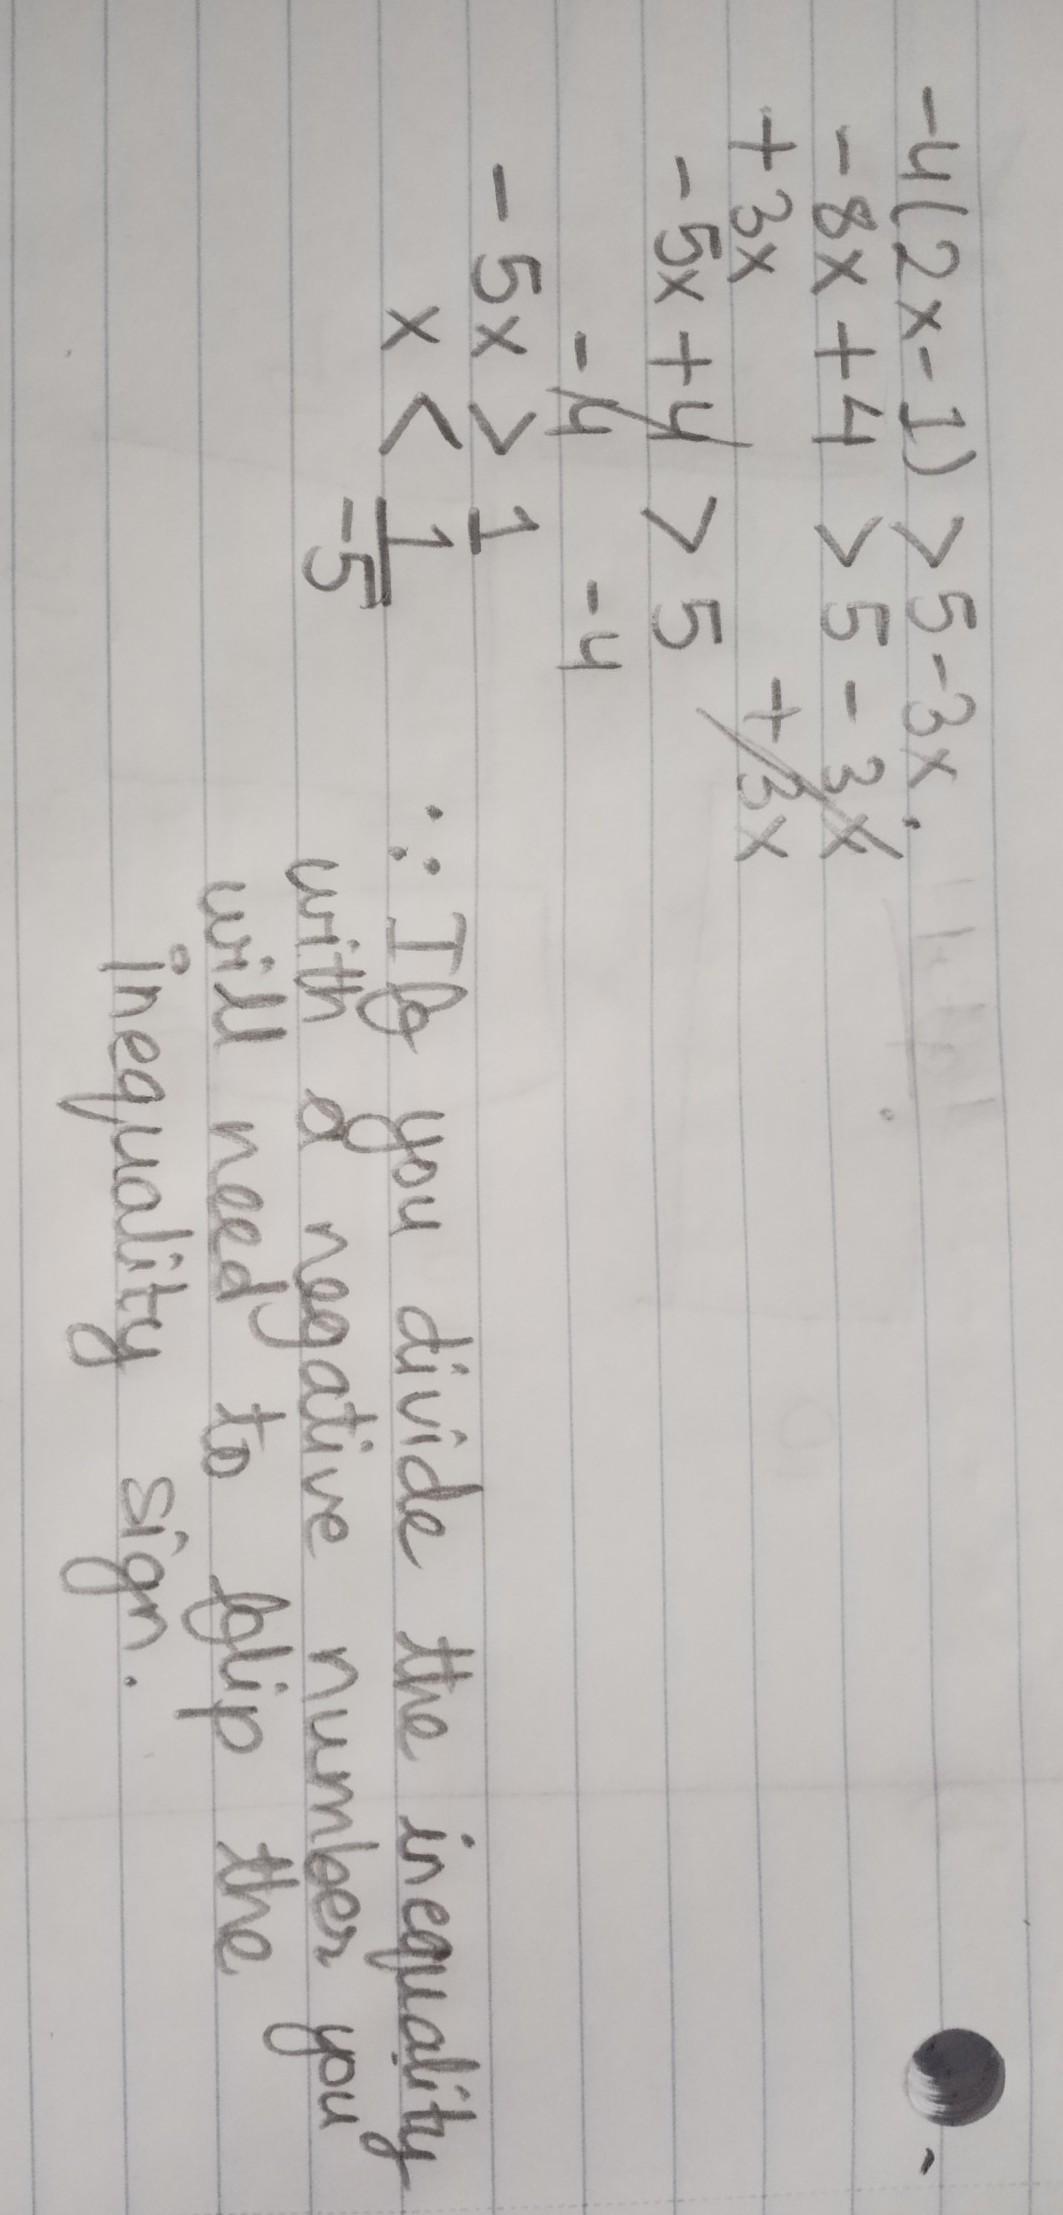 -4(2x-1) > 5-3x.
-8x+4 > 5-3x
+3x +3x
-5x+4 > 5
-4 -4
-5x > 1
x < 1/-5
∴ If you divide the inequality
with a negative number you
will need to flip the
inequality sign.